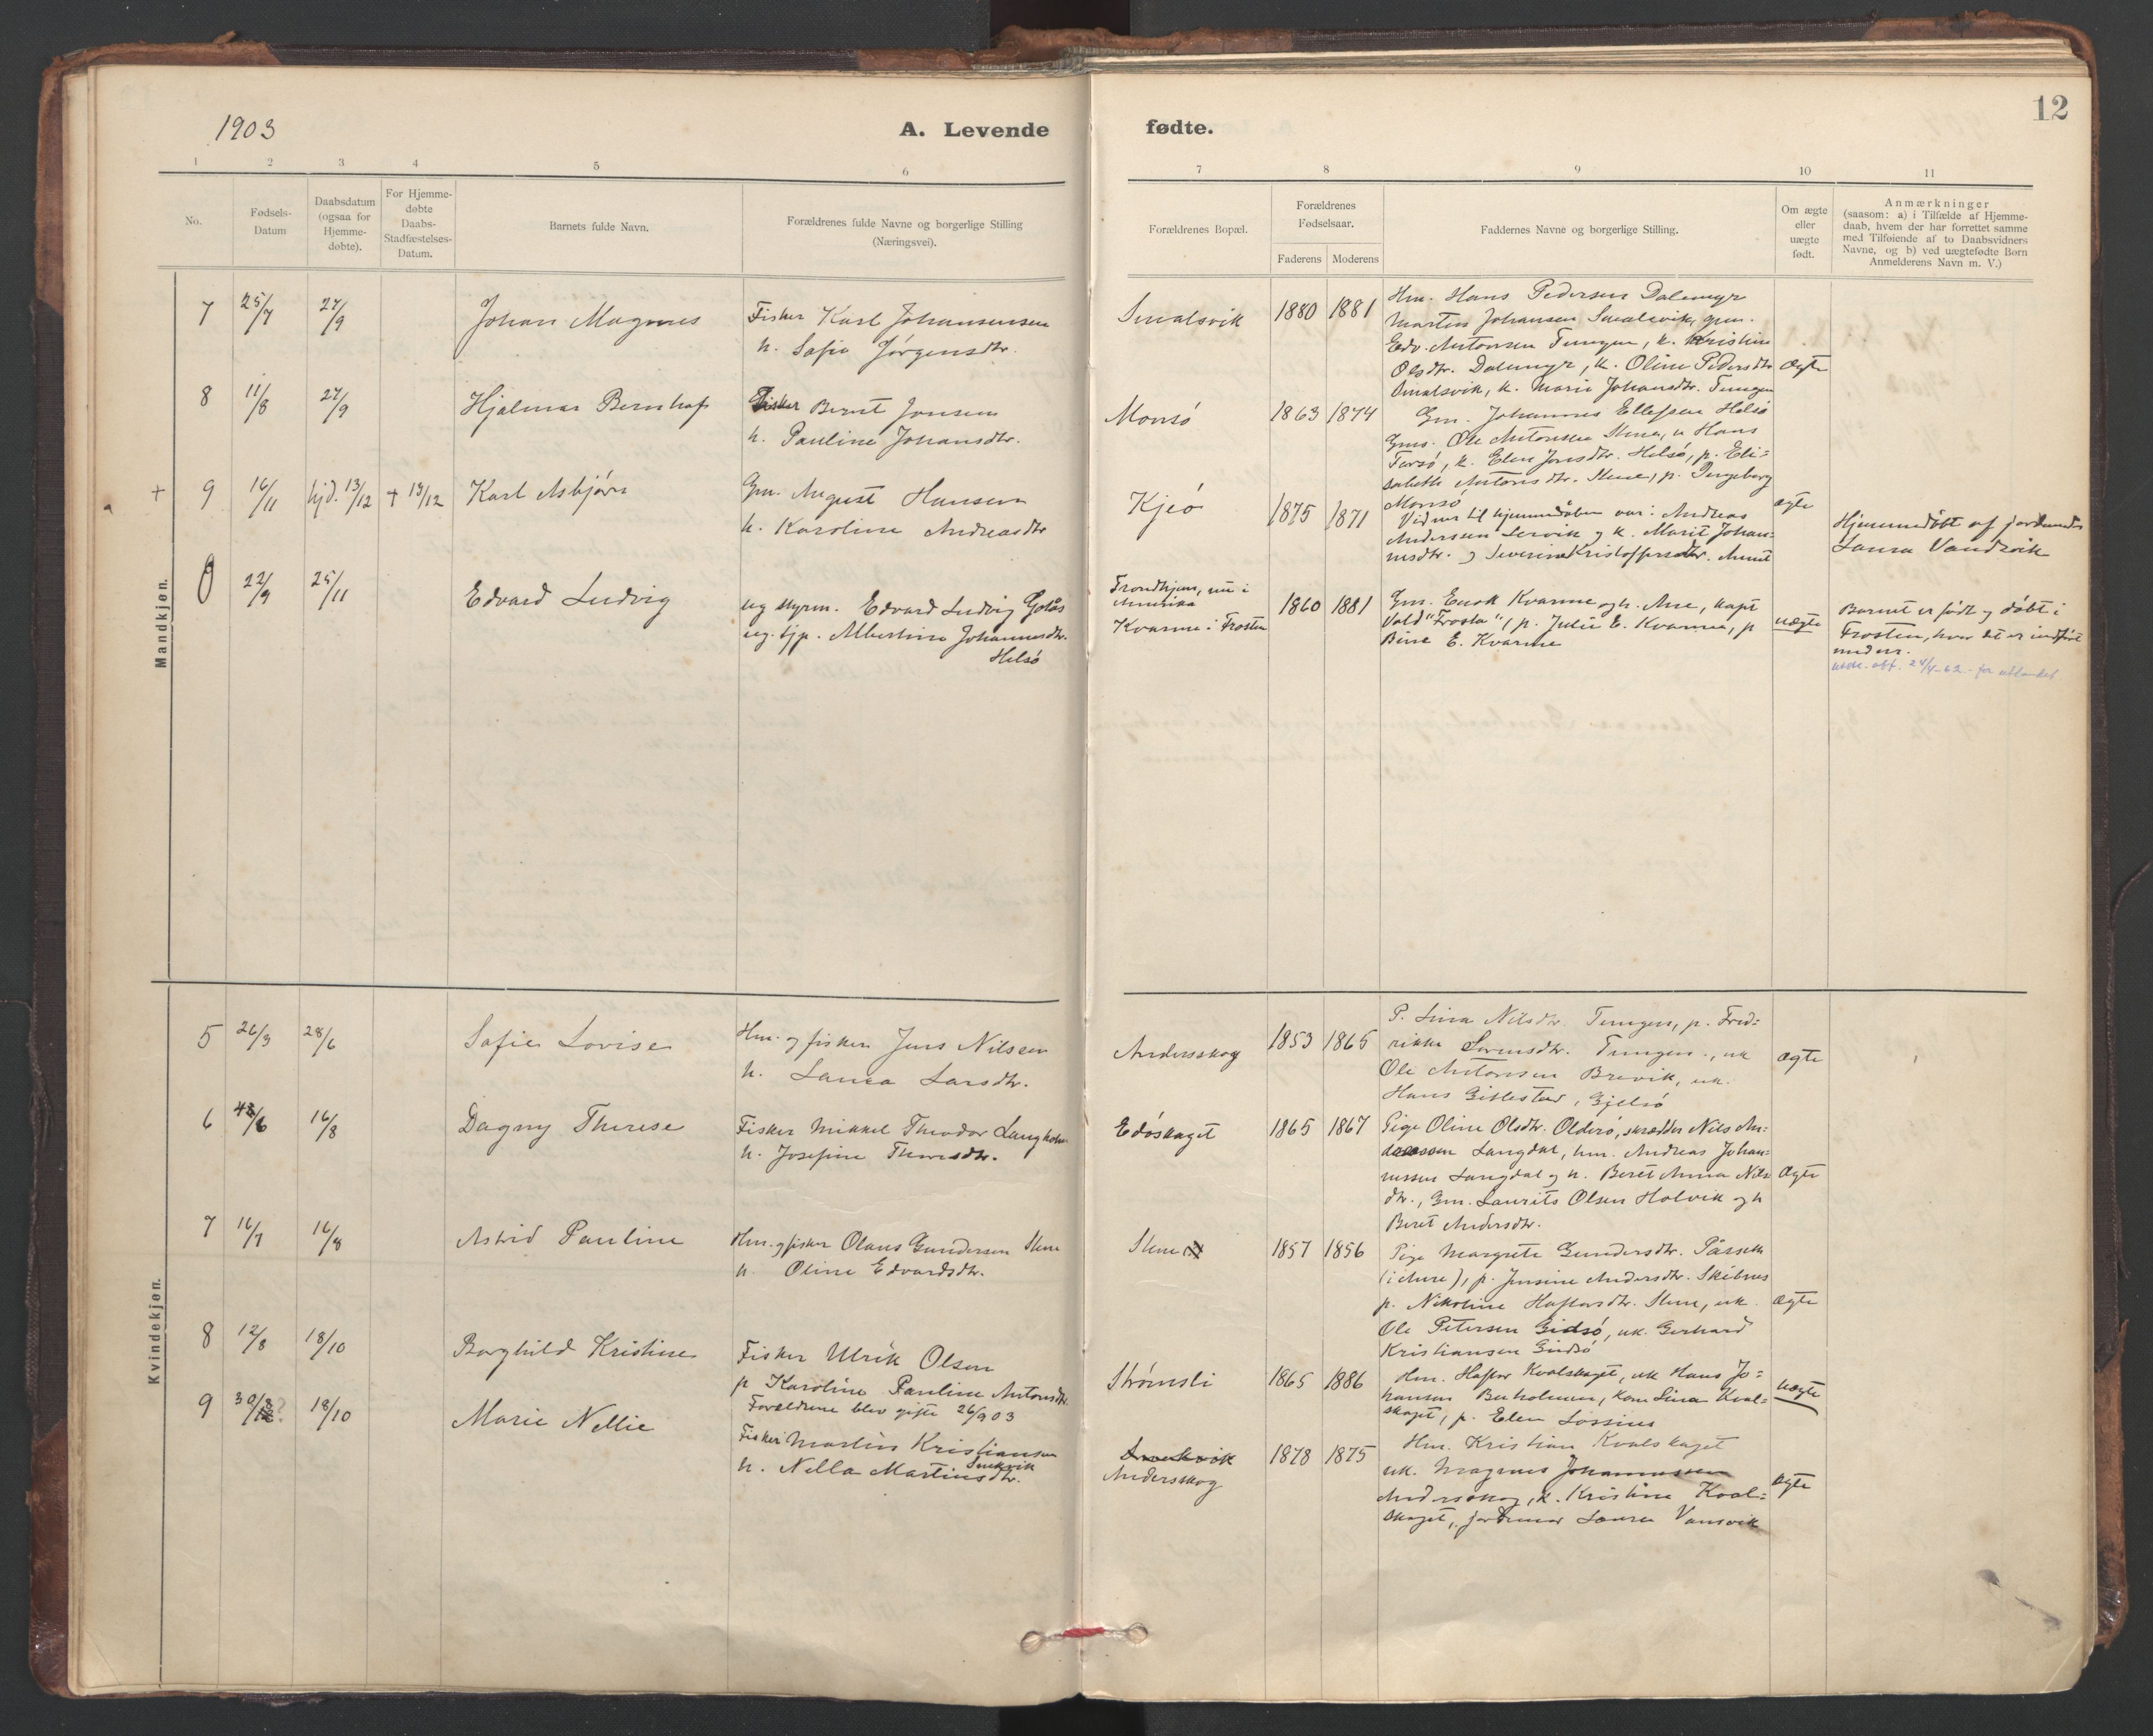 12
1903
A. Levende fødte.
1 2 3 4 5 6 7 8 9 10 11
No.
Fødsels-
Datum
Daabsdatum
(ogsaa for
Hjemme-
døbte).
For Hjemme-
døbte
Daabs-
Stadfæstelses-
Datum.
Barnets fulde Navn.
Forældrenes fulde Navne og borgerlige Stilling
(Næringsvei).
Forældrenes Bopæl.
Forældrenes
Fødselsaar.
Faderens Moderens
Faddernes Navne og borgerlige Stilling.
Om ægte
eller
uægte
født.
Anmærkninger
(saasom: a) i Tilfælde af Hjemme-
daab, hvem der har forrettet samme
med Tilføiende af to Daabsvidners
Navne, og b) ved uægtefødte Børn
Anmelderens Navn m. V.)
Mandkjøn.
7 25/7 27/9 Johan Magnus
Fisker Karl Johansensen
h. Sofie Jørgensdtr.
Smalsvik 1880 1881
Hm. Hans Pedersen Dalemyr
Martin Johansen Smalsvik, gm.
Edv. Antonsen Tungen, k. Kristine
Olsdtr. Dalemyr, k. Oline Pedersdtr
Smalsvik, k. Marie Johansdtr. Tungen
Ægte
8 11/8 27/9 Hjalmar Bernhof
Fisker Bernt Jonsen
h. Pauline Johansdtr.
Monsø 1863 1874
Gm. Johannes Ellefsen Helsø
Gms. Ole Antonsen Stene, u Hans
Torsø, k. Elen Jonsdtr. Helsø, p. Eli=
sabeth Antonsdtr. Stene, p. Ingeborg
Monsø
ægte
+ 9 16/11 hjd. 13/12 + 13/12 Karl Asbjørn
Gm. August Hansen
h. Karoline Andreasdtr
Kjeø 1875 1871
Vidner til hjemmedåben var: Andreas
Anderssen Lervik og k. Marit Johan=
nesdtr. og Severine Kristoffersdtr.
Hjemmedøbt af jordmoder
Laura Vandsvik
0 22/9 25/11 Edvard Ludvig
ug styrm. Edvard Ludvig Golås
ug. tjp. Albertine Johannesdtr.
Helsø
Trondhjem, nu i
Amerika
Kvarme i Frosten
1860 1881
Gm. Enok Kvarme og h. Ane, kapt
Vold "Frosta", p. Julie E. Kvarme, p
Bine E. Kvarme
uægte
Barnet er født og døbt i
Frosten, hvor det er indført
under.
att. 24/4-62 - for utlandet
Kvindekjøn.
5 26/3 28/6 Sofie Lovise
Hm. og fisker Jens Nilsen
h. Laura Larsdtr.
Andersskog 1853 1865
P. Lina Nilsdtr. Tungen, p. Fred=
rikke Sørensdtr. Tungen., uk
Ole Antonsen Brevik, uk.
Hans Gittestad, Gjelsø
ægte
6 /6 16/8 Dagny Therese
Fisker Mikkel Theodor Langholm
h. Josefine Thoresdtr.
Edøskaget 1865 1867
Pige Oline Olsdtr. Olderø, skrædder Nils An=
dersson Langdal, hm. Andreas Johan=
nessen Langdal og h. Beret Anna Nils
dtr., Gm. Laurits Olsen Holvik og h
Beret Andersdtr.
Ægte
7 16/7 16/8 Astrid Pauline
Hm. og fisker Olaus Gundersen Stene
h. Oline Edvardsdtr.
Stene 1857 1856
Pige Margrete Gundersdtr.
(i Aure), p. Jensine Andersdtr. Skibnes
p. Nikoline Haftorsdtr. Stene, uk.
Ole Petersen Gidsø, uk. Gerhard
Kristiansen Gidsø
Ægte
8 12/8 18/10 Borghild Kristine
Fisker Ulrik Olsen
p Karoline Pauline Antonsdtr.
Forældrene blev gifte 26/9 03
Strømsli 1865 1886
Hm. Haftor Kvalskaget, uk Hans Jo=
hansen Burholmen, kone Lina Kval=
skaget, p. Elen
uægte
9 30/8? 18/10 Marie Nellie
Fisker Martin Kristiansen
h. Nella Martinsdtr.
Andersskog
1878 1875
Hm. Kristian Kvalskaget
uk. Magnus Johannessen
Andersskog, k. Kristine Kval=
skaget, jordmor Laura Vansvik
ægte